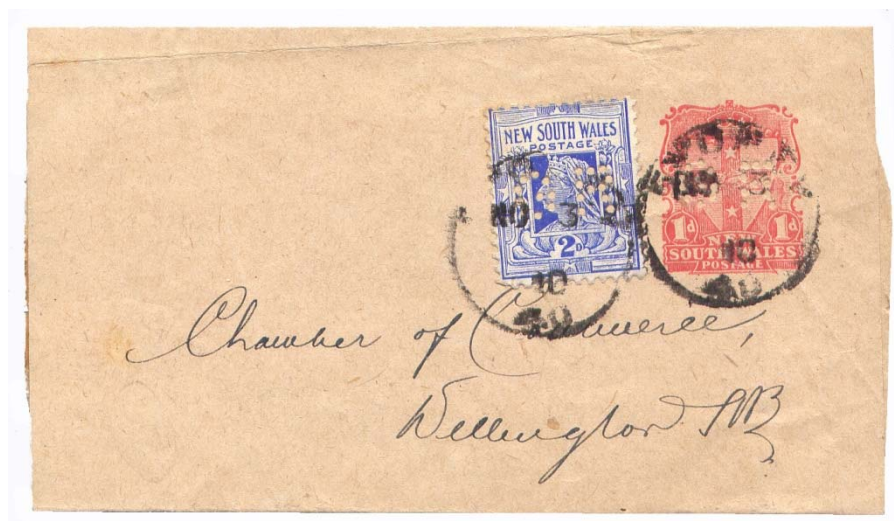 NEW SOUTH WALES
POSTAGE
2D
1d 1d
NEW
SOUTH WALES
POSTAGE
NO 3
10
10
Chamber of Commerce,
Wellington NZ